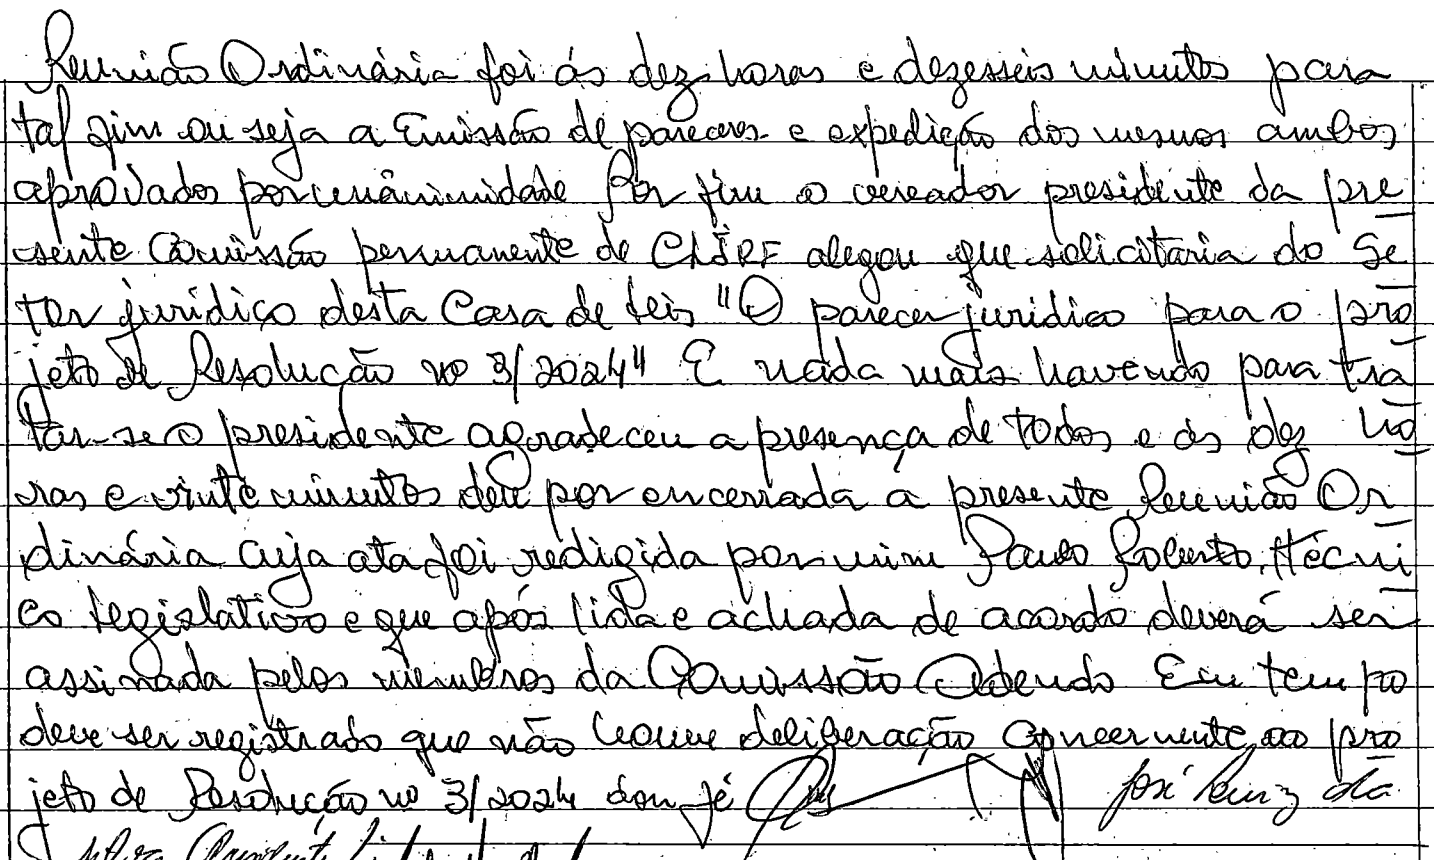 Reunião Ordinária foi ás dez horas e dezesseis minutos para
tal fim ou seja a Emissão de pareceres e expedição dos mesmos ambos
aprovados por unânimidade Por fim o vereador presidente da pre
sente Comissão permanente de CLJRF alegou que solicitaria do Se
tor jurídico desta Casa de Leis "O parecer jurídico para o pro
jeto de Resolução nº 3/2024" E nada mais havendo para tra
tar-se o presidente agradeceu a presença de todos e ás dez ho
ras e vinte minutos deu por encerrada a presente Reunião Or
dinária cuja ata foi redigida por mim Paulo Roberto, técni
co legislativo e que após lida e achada de acordo deverá ser
assinada pelos membros da Comissão Adendo Em tempo
deve ser registrado que não houve deliberação concernente ao pro
jeto de Resolução nº 3/2024 dou fé José Luiz da